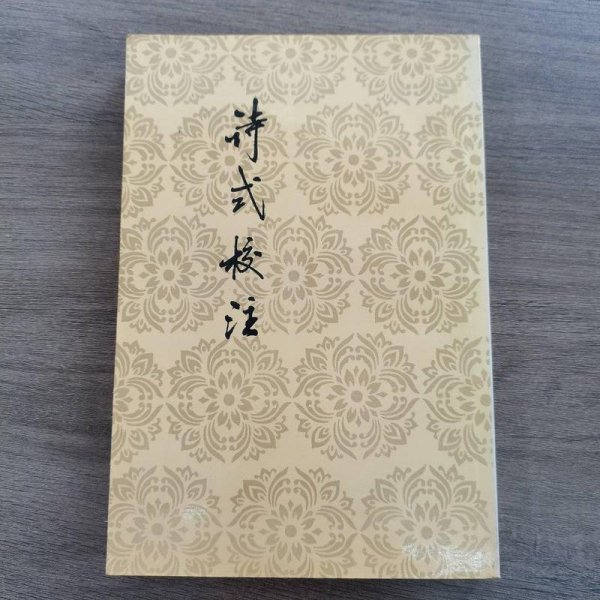 诗式校注